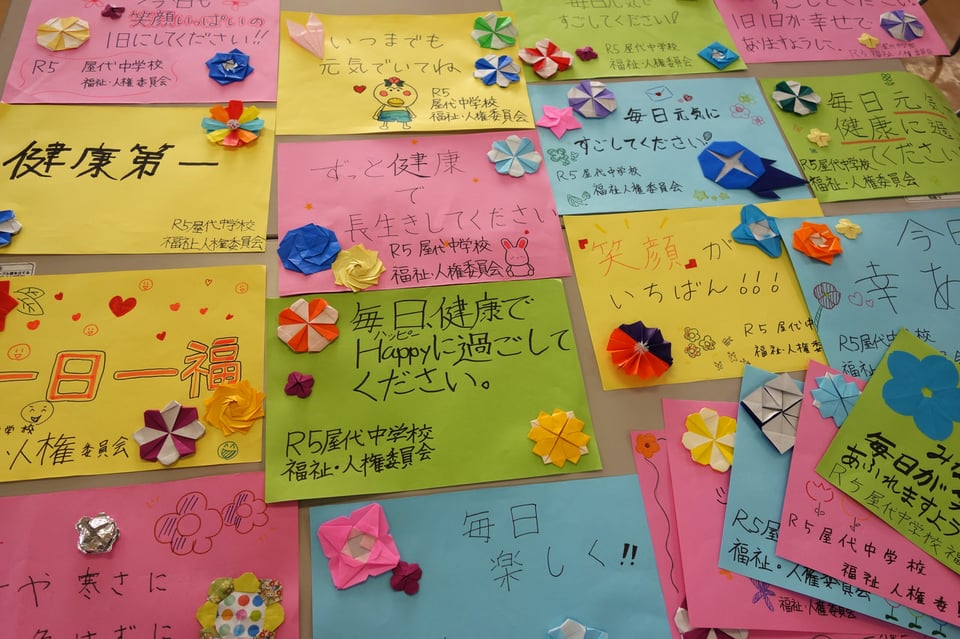 笑顔いっぱいの
1日にしてください!!
R5 屋代中学校
福祉・人権委員会
いつまでも
元気でいてね
R5
屋代中学校
福祉・人権委員会
すごしてください!
R5 屋代中学校
福祉・人権委員会
1日1日が幸せで
ありますように、
健康第一
R5屋代中学校
福祉・人権委員会
ずっと健康
で
長生きしてください
R5 屋代中学校
福祉・人権委員会
毎日元気に
すごしてください!
R5 屋代中学校
福祉人権委員会
毎日元気
健康に過
てください
R5 屋代中学校
福祉・人権委員会
一日一福
学校
・人権委員会
毎日、健康で
ハッピー
Happyに過ごして
ください。
R5屋代中学校
福祉・人権委員会
『笑顔』が
いちばん!!!
R5 屋代中
福祉・人権委
今日
幸 あ
R5 屋代中学校
福祉・人権委員会
や 寒さに
毎日
楽しく!!
R5屋
福祉・人権委員会
R5 屋代中学校
福祉・人権委員会
福祉・人権委員会
み
毎日が
あふれますよう
R5屋代中学校 福